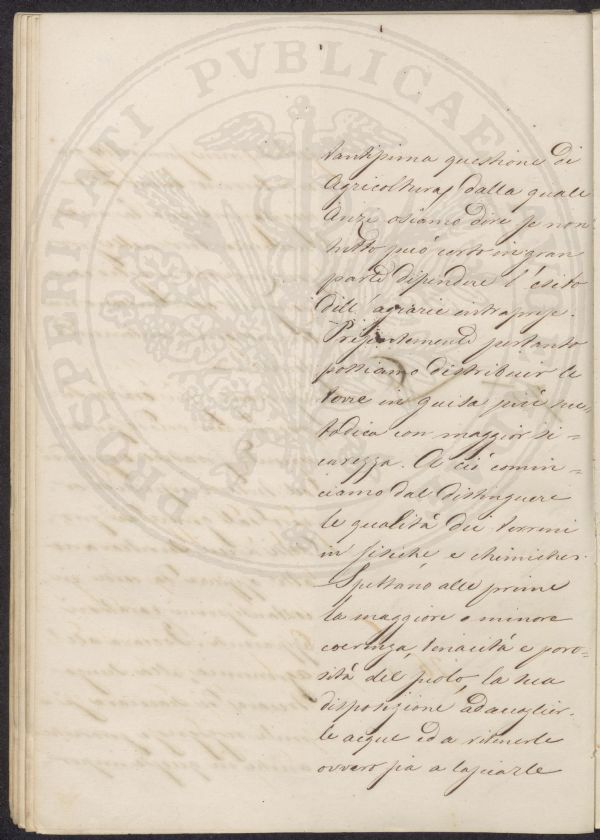 PROSPERITATI PVBLICAE
tantissima questione di
Agricoltura, dalla quale
Anzi osiamo dire se non
tutto però certo in gran
parte dipendere l'esito
dell'agrarie intraprese.
Presentemente pertanto
possiamo distribuir le
terre in guisa più me-
todica con maggior si-
curezza. A ciò comin-
ciamo dal distinguere
le qualità dei terreni
in fisiche e chimiche.
Spettano alle prime
la maggiore o minore
coerenza, tenacità e poro-
sità del suolo, la sua
disposizione ad accoglier-
le acque ed a ritenerle
ovvero sia a lasciarle